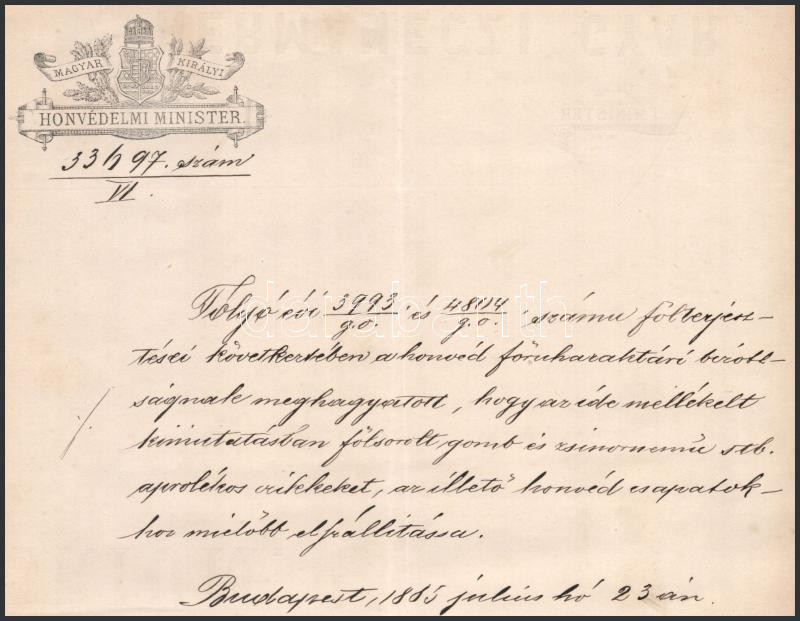 MAGYAR KIRÁLYI
HONVÉDELMI MINISTER.
33h97. szám
VI.
Folyó évi 3993/g.o. és 4804/g.o. számu fölterjesz-
tései következtében a honvéd főruharaktári bizott-
ságnak meghagyatott, hogy az ide mellékelt
kimutatásban fölsorolt gomb és zsinornemü stb.
aprolékos czikkeket, az illető honvéd csapatok-
hoz mielőbb elszállitássa.
Budapest, 1885 július hó 23 án.
darabanth